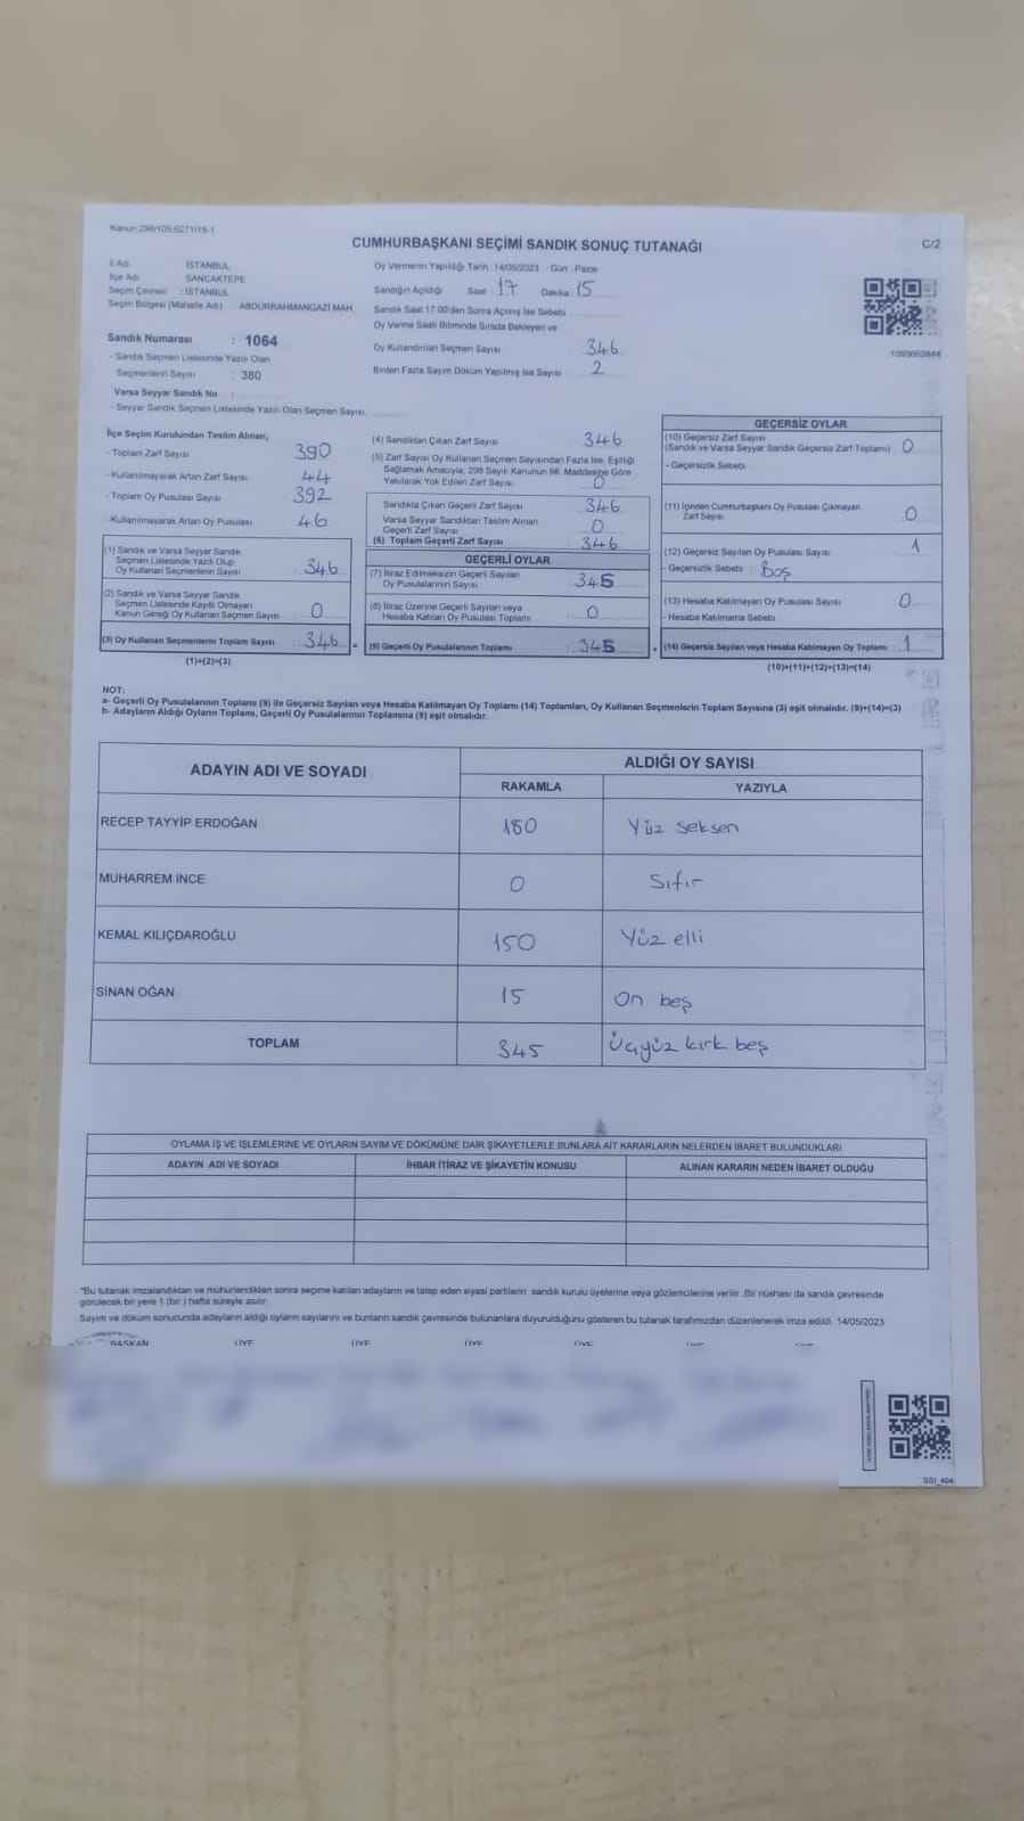 Kanun:298/105,6271/19-1
CUMHURBAŞKANI SEÇİMİ SANDIK SONUÇ TUTANAĞI
C/2
İl Adı : İSTANBUL
İlçe Adı : SANCAKTEPE
Seçim Çevresi : İSTANBUL
Seçim Bölgesi (Mahalle Adı) : ABDURRAHMANGAZİ MAH.
Oy Vermenin Yapıldığı Tarih :14/05/2023 Gün : Pazar
Sandığın Açıldığı Saat : 17 Dakika : 15
Sandık Saat 17.00'den Sonra Açılmış İse Sebebi
Oy Verme Saati Bitiminde Sırada Bekleyen ve
Oy Kullandırılan Seçmen Sayısı 346
Birden Fazla Sayım Döküm Yapılmış İse Sayısı 2
Sandık Numarası : 1064
- Sandık Seçmen Listesinde Yazılı Olan
Seçmenlerin Sayısı : 380
Varsa Seyyar Sandık No :
- Seyyar Sandık Seçmen Listesinde Yazılı Olan Seçmen Sayısı
İlçe Seçim Kurulundan Teslim Alınan;
- Toplam Zarf Sayısı 390
- Kullanılmayarak Artan Zarf Sayısı 44
- Toplam Oy Pusulası Sayısı 392
- Kullanılmayarak Artan Oy Pusulası 46
(1) Sandık ve Varsa Seyyar Sandık
Seçmen Listesinde Yazılı Olup
Oy Kullanan Seçmenlerin Sayısı 346
(2) Sandık ve Varsa Seyyar Sandık
Seçmen Listesinde Kayıtlı Olmayan
Kanun Gereği Oy Kullanan Seçmen Sayısı 0
(3) Oy Kullanan Seçmenlerin Toplam Sayısı 346
(1)+(2)=(3)
(4) Sandıktan Çıkan Zarf Sayısı 346
(5) Zarf Sayısı Oy Kullanan Seçmen Sayısından Fazla İse, Eşitliği
Sağlamak Amacıyla, 298 Sayılı Kanunun 98. Maddesine Göre
Yakılarak Yok Edilen Zarf Sayısı 0
Sandıkta Çıkan Geçerli Zarf Sayısı 346
Varsa Seyyar Sandıktan Teslim Alınan
Geçerli Zarf Sayısı 0
(6) Toplam Geçerli Zarf Sayısı 346
GEÇERLİ OYLAR
(7) İtiraz Edilmeksizin Geçerli Sayılan
Oy Pusulalarının Sayısı 345
(8) İtiraz Üzerine Geçerli Sayılan veya
Hesaba Katılan Oy Pusulası Toplamı 0
(9) Geçerli Oy Pusulalarının Toplamı 345
GEÇERSİZ OYLAR
(10) Geçersiz Zarf Sayısı
(Sandık ve Varsa Seyyar Sandık Geçersiz Zarf Toplamı) 0
- Geçersizlik Sebebi
(11) İçinden Cumhurbaşkanı Oy Pusulası Çıkmayan
Zarf Sayısı 0
(12) Geçersiz Sayılan Oy Pusulası Sayısı 1
- Geçersizlik Sebebi : Boş
(13) Hesaba Katılmayan Oy Pusulası Sayısı 0
- Hesaba Katılmama Sebebi
(14) Geçersiz Sayılan veya Hesaba Katılmayan Oy Toplamı 1
(10)+(11)+(12)+(13)=(14)
NOT:
a- Geçerli Oy Pusulalarının Toplamı (9) ile Geçersiz Sayılan veya Hesaba Katılmayan Oy Toplamı (14) Toplamları, Oy Kullanan Seçmenlerin Toplam Sayısına (3) eşit olmalıdır. (9)+(14)=(3)
b- Adayların Aldığı Oyların Toplamı, Geçerli Oy Pusulalarının Toplamına (9) eşit olmalıdır.
ADAYIN ADI VE SOYADI
ALDIĞI OY SAYISI
RAKAMLA YAZIYLA
RECEP TAYYİP ERDOĞAN 180 Yüz seksen
MUHARREM İNCE 0 Sıfır
KEMAL KILIÇDAROĞLU 150 Yüz elli
SİNAN OĞAN 15 On beş
TOPLAM 345 Üçyüz kırk beş
OYLAMA İŞ VE İŞLEMLERİNE VE OYLARIN SAYIM VE DÖKÜMÜNE DAİR ŞİKAYETLERLE BUNLARA AİT KARARLARIN NELERDEN İBARET BULUNDUKLARI
ADAYIN ADI VE SOYADI İHBAR İTİRAZ VE ŞİKAYETİN KONUSU ALINAN KARARIN NEDEN İBARET OLDUĞU
*Bu tutanak imzalandıktan ve mühürlendikten sonra seçime katılan adayların ve talep eden siyasi partilerin sandık kurulu üyelerine veya gözlemcilerine verilir. Bir nüshası da sandık çevresinde
görülecek bir yere 1 (bir ) hafta süreyle asılır.
Sayım ve döküm sonucunda adayların aldığı oyların sayılarını ve bunların sandık çevresinde bulunanlara duyurulduğunu gösteren bu tutanak tarafımızdan düzenlenerek imza edildi. 14/05/2023
BAŞKAN ÜYE ÜYE ÜYE ÜYE